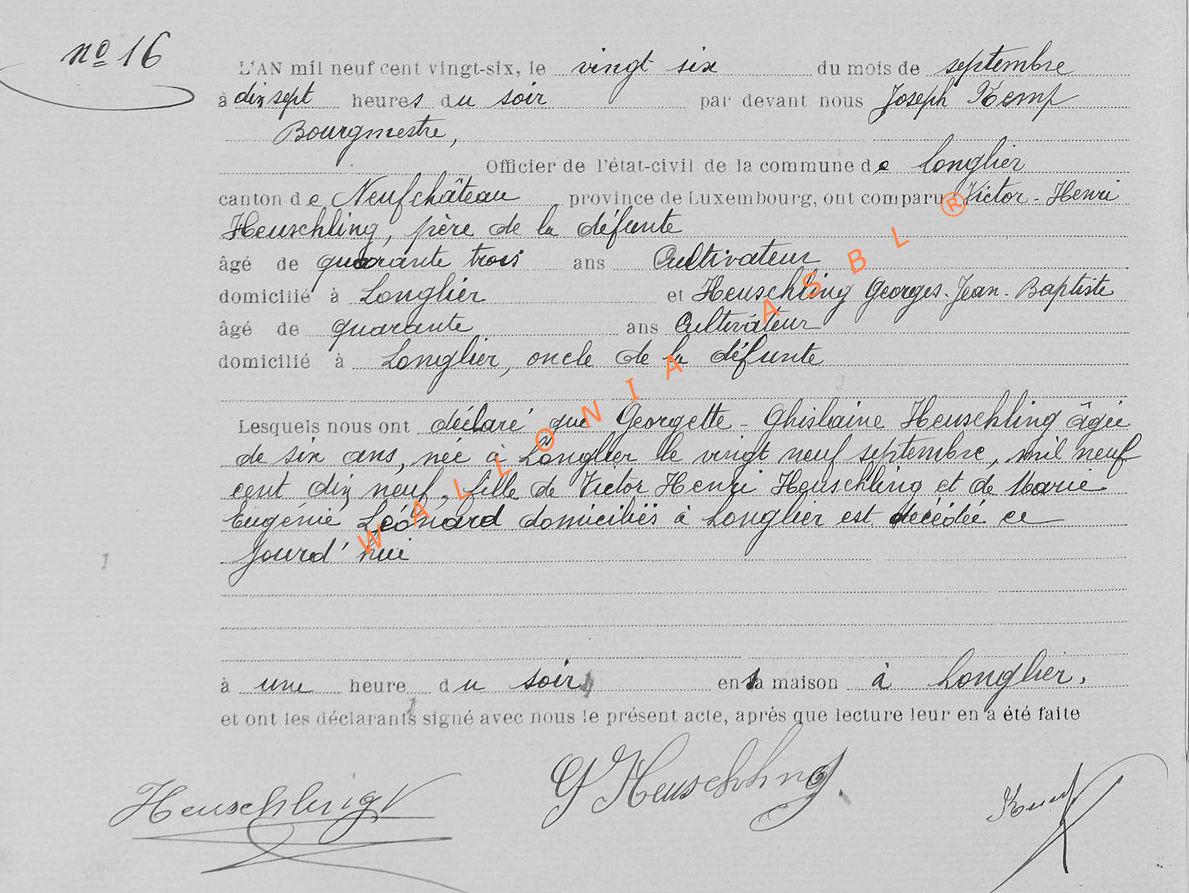 nº 16
L'AN mil neuf cent vingt-six, le vingt six du mois de septembre
à dix sept heures du soir par devant nous Joseph Kemp
Bourgmestre,
Officier de l'état-civil de la commune de Longlier
canton de Neufchâteau province de Luxembourg, ont comparu Victor - Henri
Heuschling, père de la défunte
âgé de quarante trois ans Cultivateur
domicilié à Longlier et Heuschling Georges-Jean-Baptiste
âgé de quarante ans Cultivateur
domicilié à Longlier, oncle de la défunte
Lesquels nous ont déclaré que Georgette - Ghislaine Heuschling âgée
de six ans, née à Longlier le vingt neuf septembre, mil neuf
cent dix neuf, fille de Victor Henri Heuschling et de Marie
Eugénie Léonard domiciliés à Longlier est décédée ce
jourd'hui
à une heure du soir en sa maison à Longlier.
et ont les déclarants signé avec nous le présent acte, après que lecture leur en a été faite
Heuschling V
G Heuschling.
Kemp
WALLONIA ASBL ®